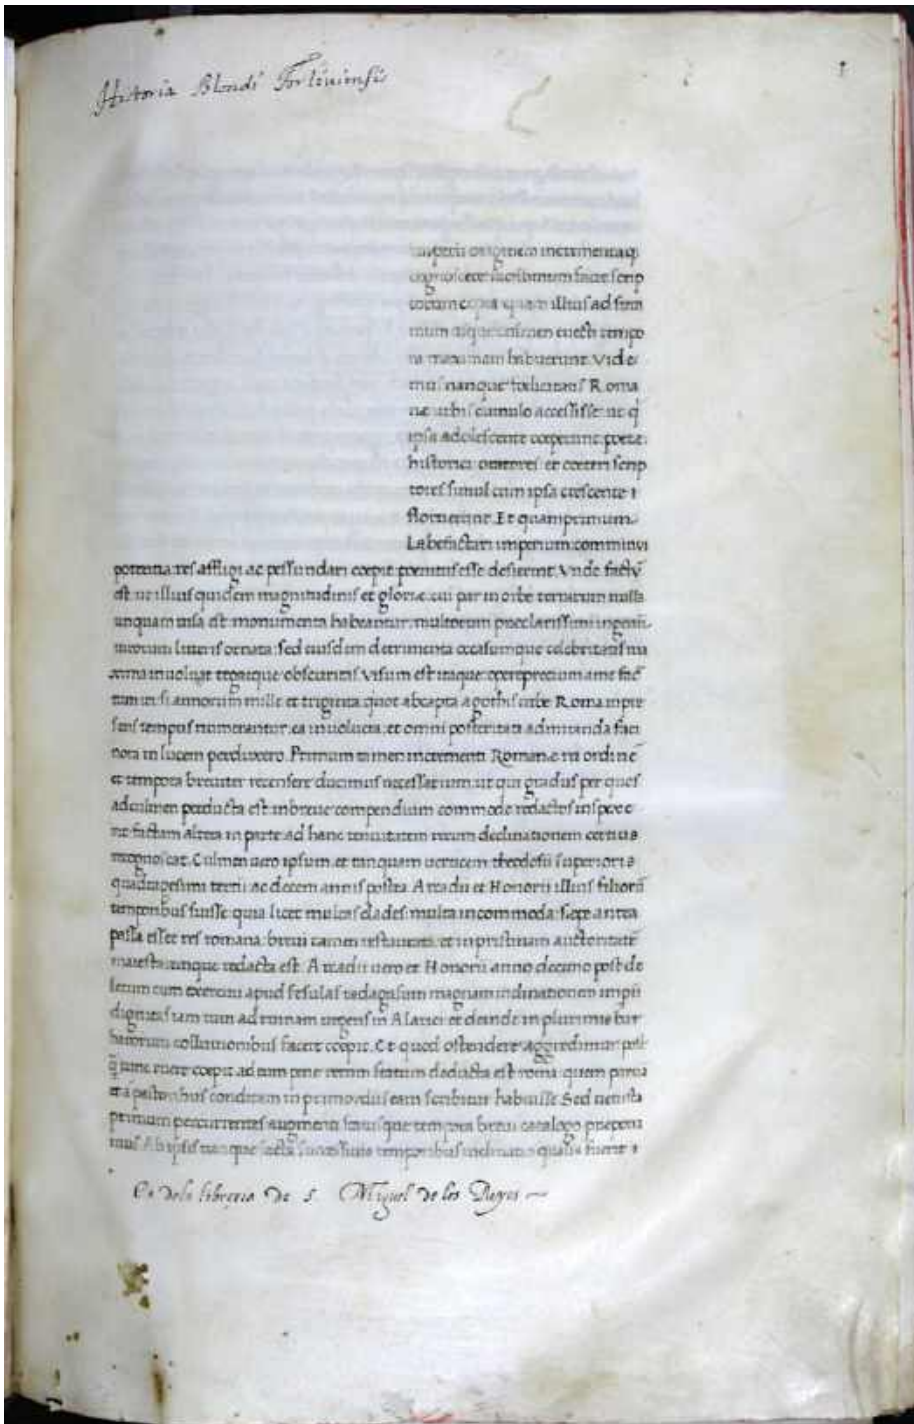 Historia Blondi Forliviensis
1
imperii originem incrementaq;
cognoscere facillimum facit scrip
torum copia quam illius ad sum
mum usque culmen euecti tempo
ra maximam habuerunt. Vide
mus nanque felicitatis Roma
næ urbis cumulo accessisse: ut q
ipsa adolescente coeperunt poetæ:
historici oratores: et cæteri scrip
tores simul cum ipsa crescente
floruerint. Et quamprimum
Labefactari imperium: comminui
potentia: res affligi ac pessundari coepit poenitus esse desierint. Vnde factū
est ut illius quidem magnitudinis et gloriæ: cui par in orbe terrarum nulla
unquam uisa est: monumenta habeantur: multorum præclarissimi ingenii
uirorum litteris ornata: sed eiusdem detrimenta occasumque celebritatis ma
xima inuoluat tegatque obscuritas. Visum est itaque: operæprecium a me
si annorum mille et triginta: quot ab capta a gothis urbe Roma in præ
sens tempus numerantur: ea inuolucra: et omni posteritati admiranda faci
nora in lucem perduxero. Primum tamen incrementi Romanæ rei ordinē
et tempora breuiter recensere ducimus necessarium: ut qui gradus per quos
ad culmen perducta est in breue compendium commode redactos inspexe
rit: factam altera in parte ad hanc tenuitatem rerum declinationem certius
recognoscat. Culmen uero ipsum: et tanquam uerticem theodosii superioris
quadragesimi tertii: ac decem annis postea Arcadii et Honorii illius filiorū
temporibus fuisse: quia licet multas clades: multa incommoda: sæpe antea
passa esset res romana: breui tamen restaurata: et in pristinam auctoritatē
maiestatemque redacta est. Arcadii uero et Honorii anno decimo post de
letum cum exercitu apud fesulas radagasum magnam inclinationem impii
dignitas iam tum ad ruinam urgens in Alarici: et deinde in plurimis bar
barorum colluuionibus facere coepit. Et quod ostendere aggredimur
q̄ tunc ruere coepit ad eum pene rerum statum deducta est roma: quem parua
et a pastoribus conditam in primordiis eam scribitur habuisse. Sed uetusta
primum percurrentes augmenti statusque tempora breui catalogo præpona
mus. Ab ipsis nanque facta
Es dela libreria de S. Miguel de los Reyes